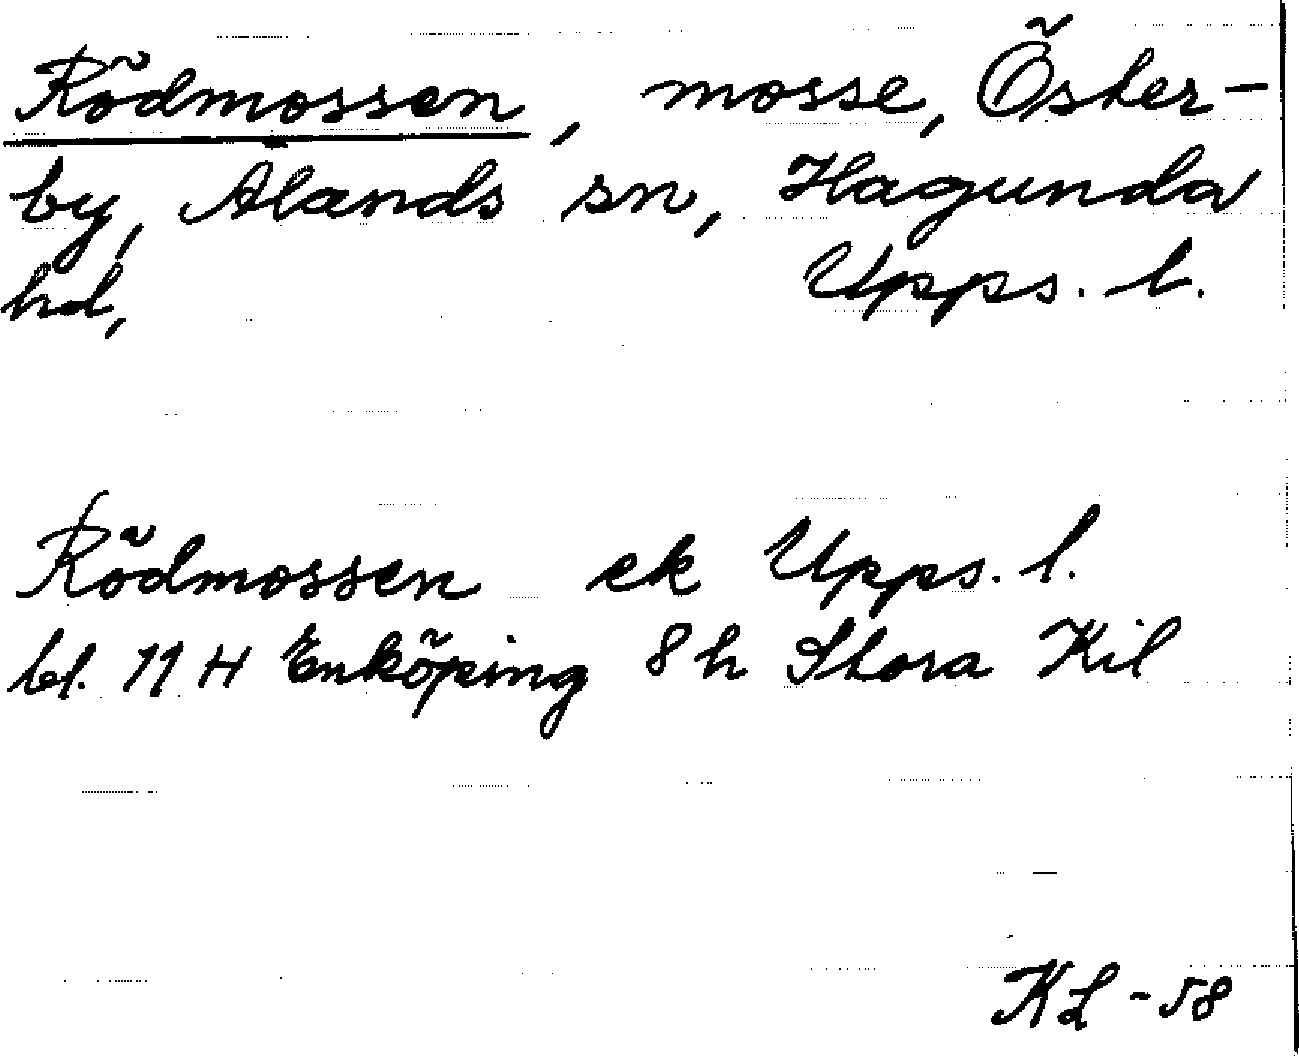 Rödmossen, mosse, Öster-
by, Alands sn, Hagunda
hd, Upps. l.
Rödmossen ek Upps. l.
bl. 11 H Enköping 8 h Stora Kil
KL -58